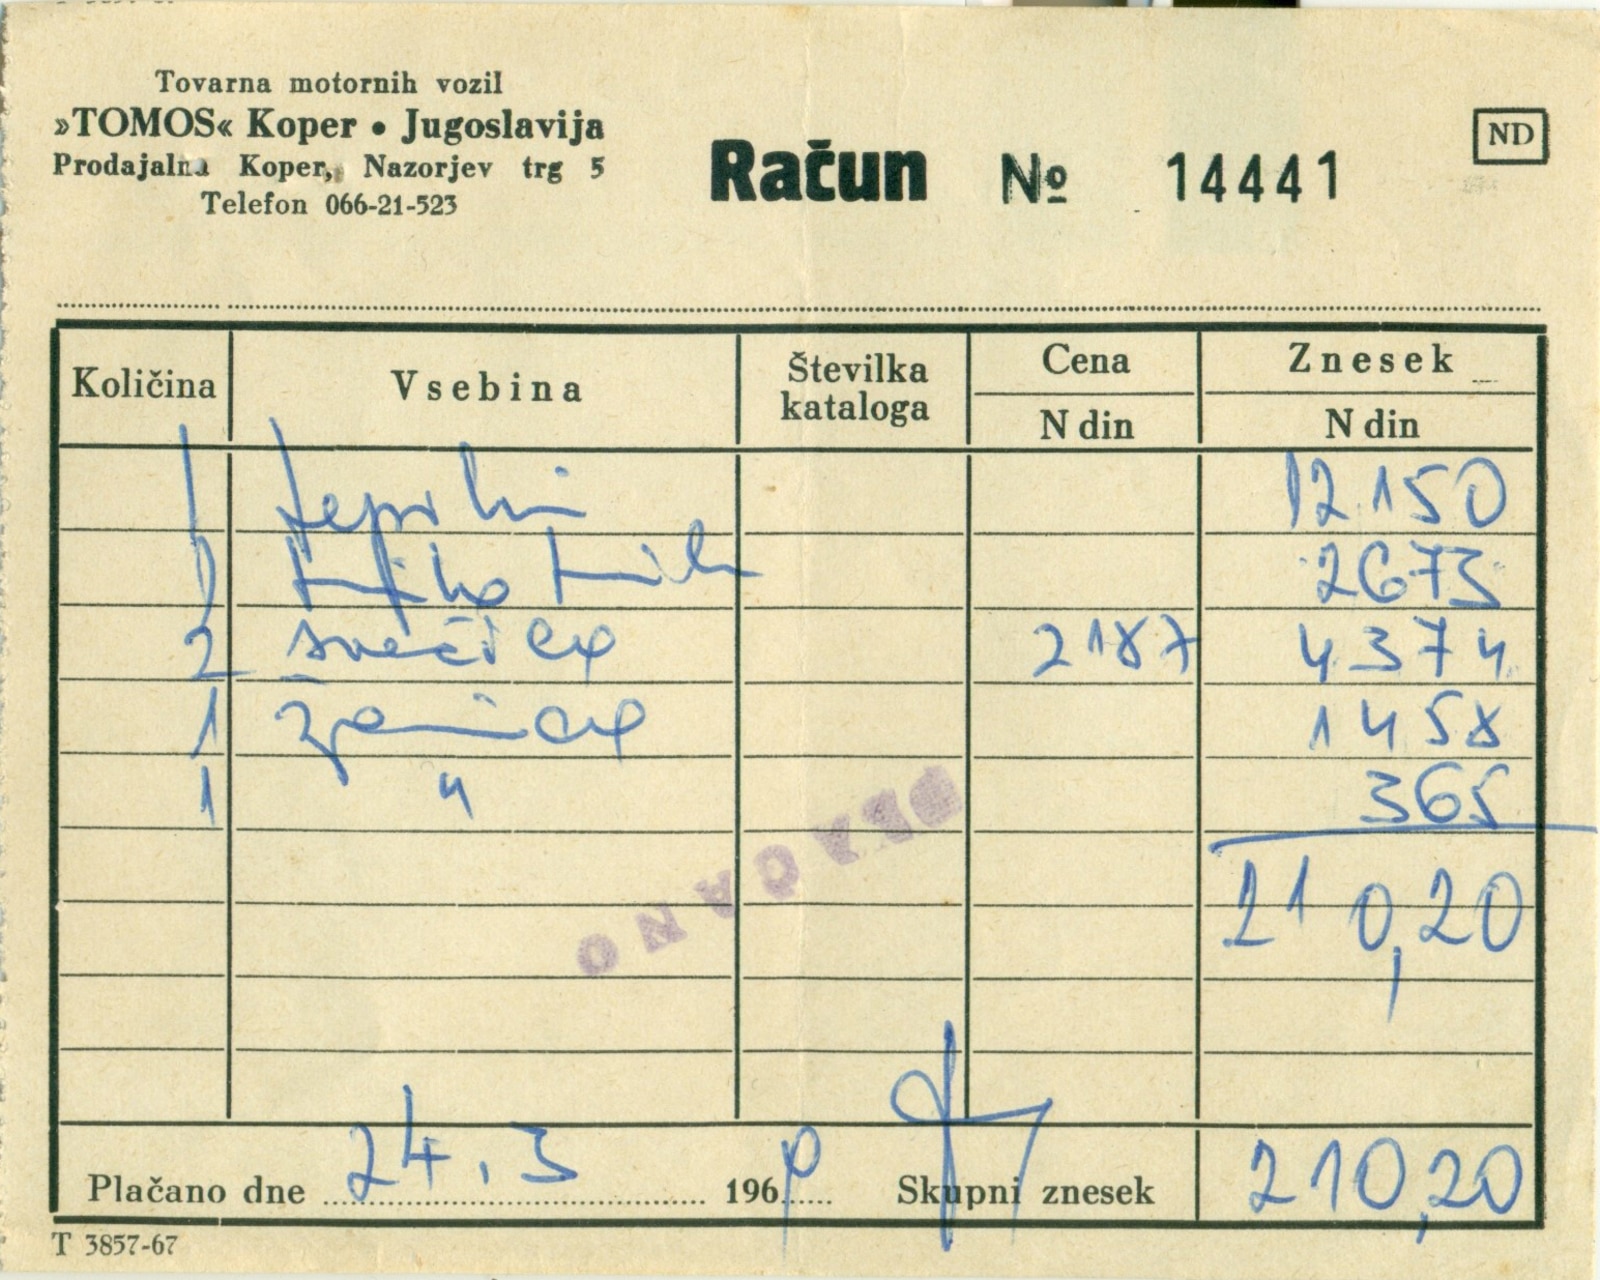 Tovarna motornih vozil
»TOMOS« Koper • Jugoslavija
Prodajalna Koper, Nazorjev trg 5
Telefon 066-21-523
Račun № 14441
ND
Količina Vsebina Številka kataloga Cena N din Znesek N din
1 12150
2673
2 svečice 2187 4374
1 1458
1 " 365
210,20
PLAČANO
Plačano dne 24.3 196 Skupni znesek 210,20
T 3857-67